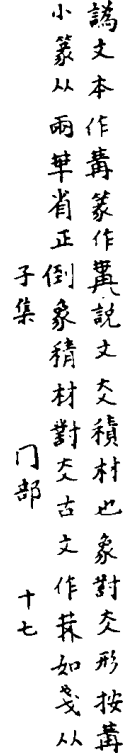 譌文本作冓篆作冓說文交積材也象對交形按冓
小篆从兩丵省正倒象積材對交古文作如戔从
子集 冂部 十七